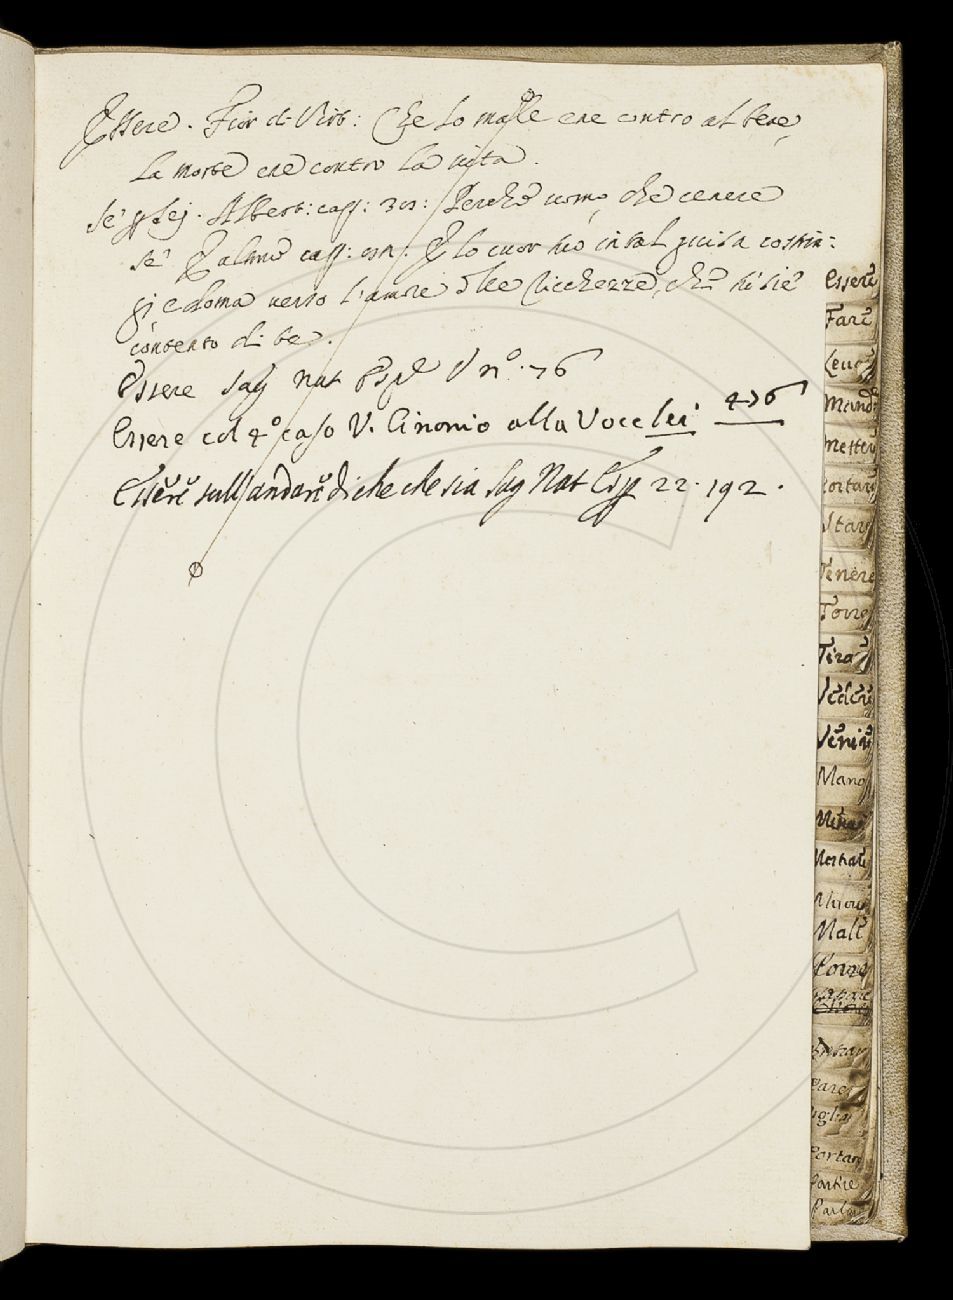 Essere. Fior di Virt: Che lo male ene contro al bene,
la morte ene contro la vita.
se' Albert: cap: Perchè uomo, che cenere
se' cap: E lo cuor tuo in tal guisa costrin:
gi e doma verso l'amore dlle Ricchezze, che tu sie
contento di te.
Essere Sag nat Esp V n.º 76
Essere col 4º caso V. Cinonio alla Voce lei 476
Essere sull'andare di che che sia Sag Nat Esp 22. 192.
Essere
Fare
Levar
Mand
Metter
ortare
Stare
Tenere
Torre
Tirar
Vedere
Venire
Mano
Mostrare
Male
Pare
Portar
Partire
Parlar